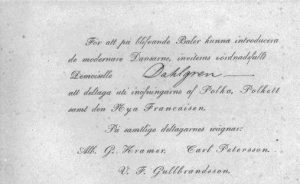 För att på blifvande Baler kunna introducera
de modernare Danserne, inviteras vördnadsfullt
Demoiselle Dahlgren
att deltaga uti inöfningarne af Polka, Polkett
samt den Nya Francaisen.
På samtlige deltagarnes wägnar:
Alb. G. Kramer. Carl Petersson.
V. F. Gullbrandsson.